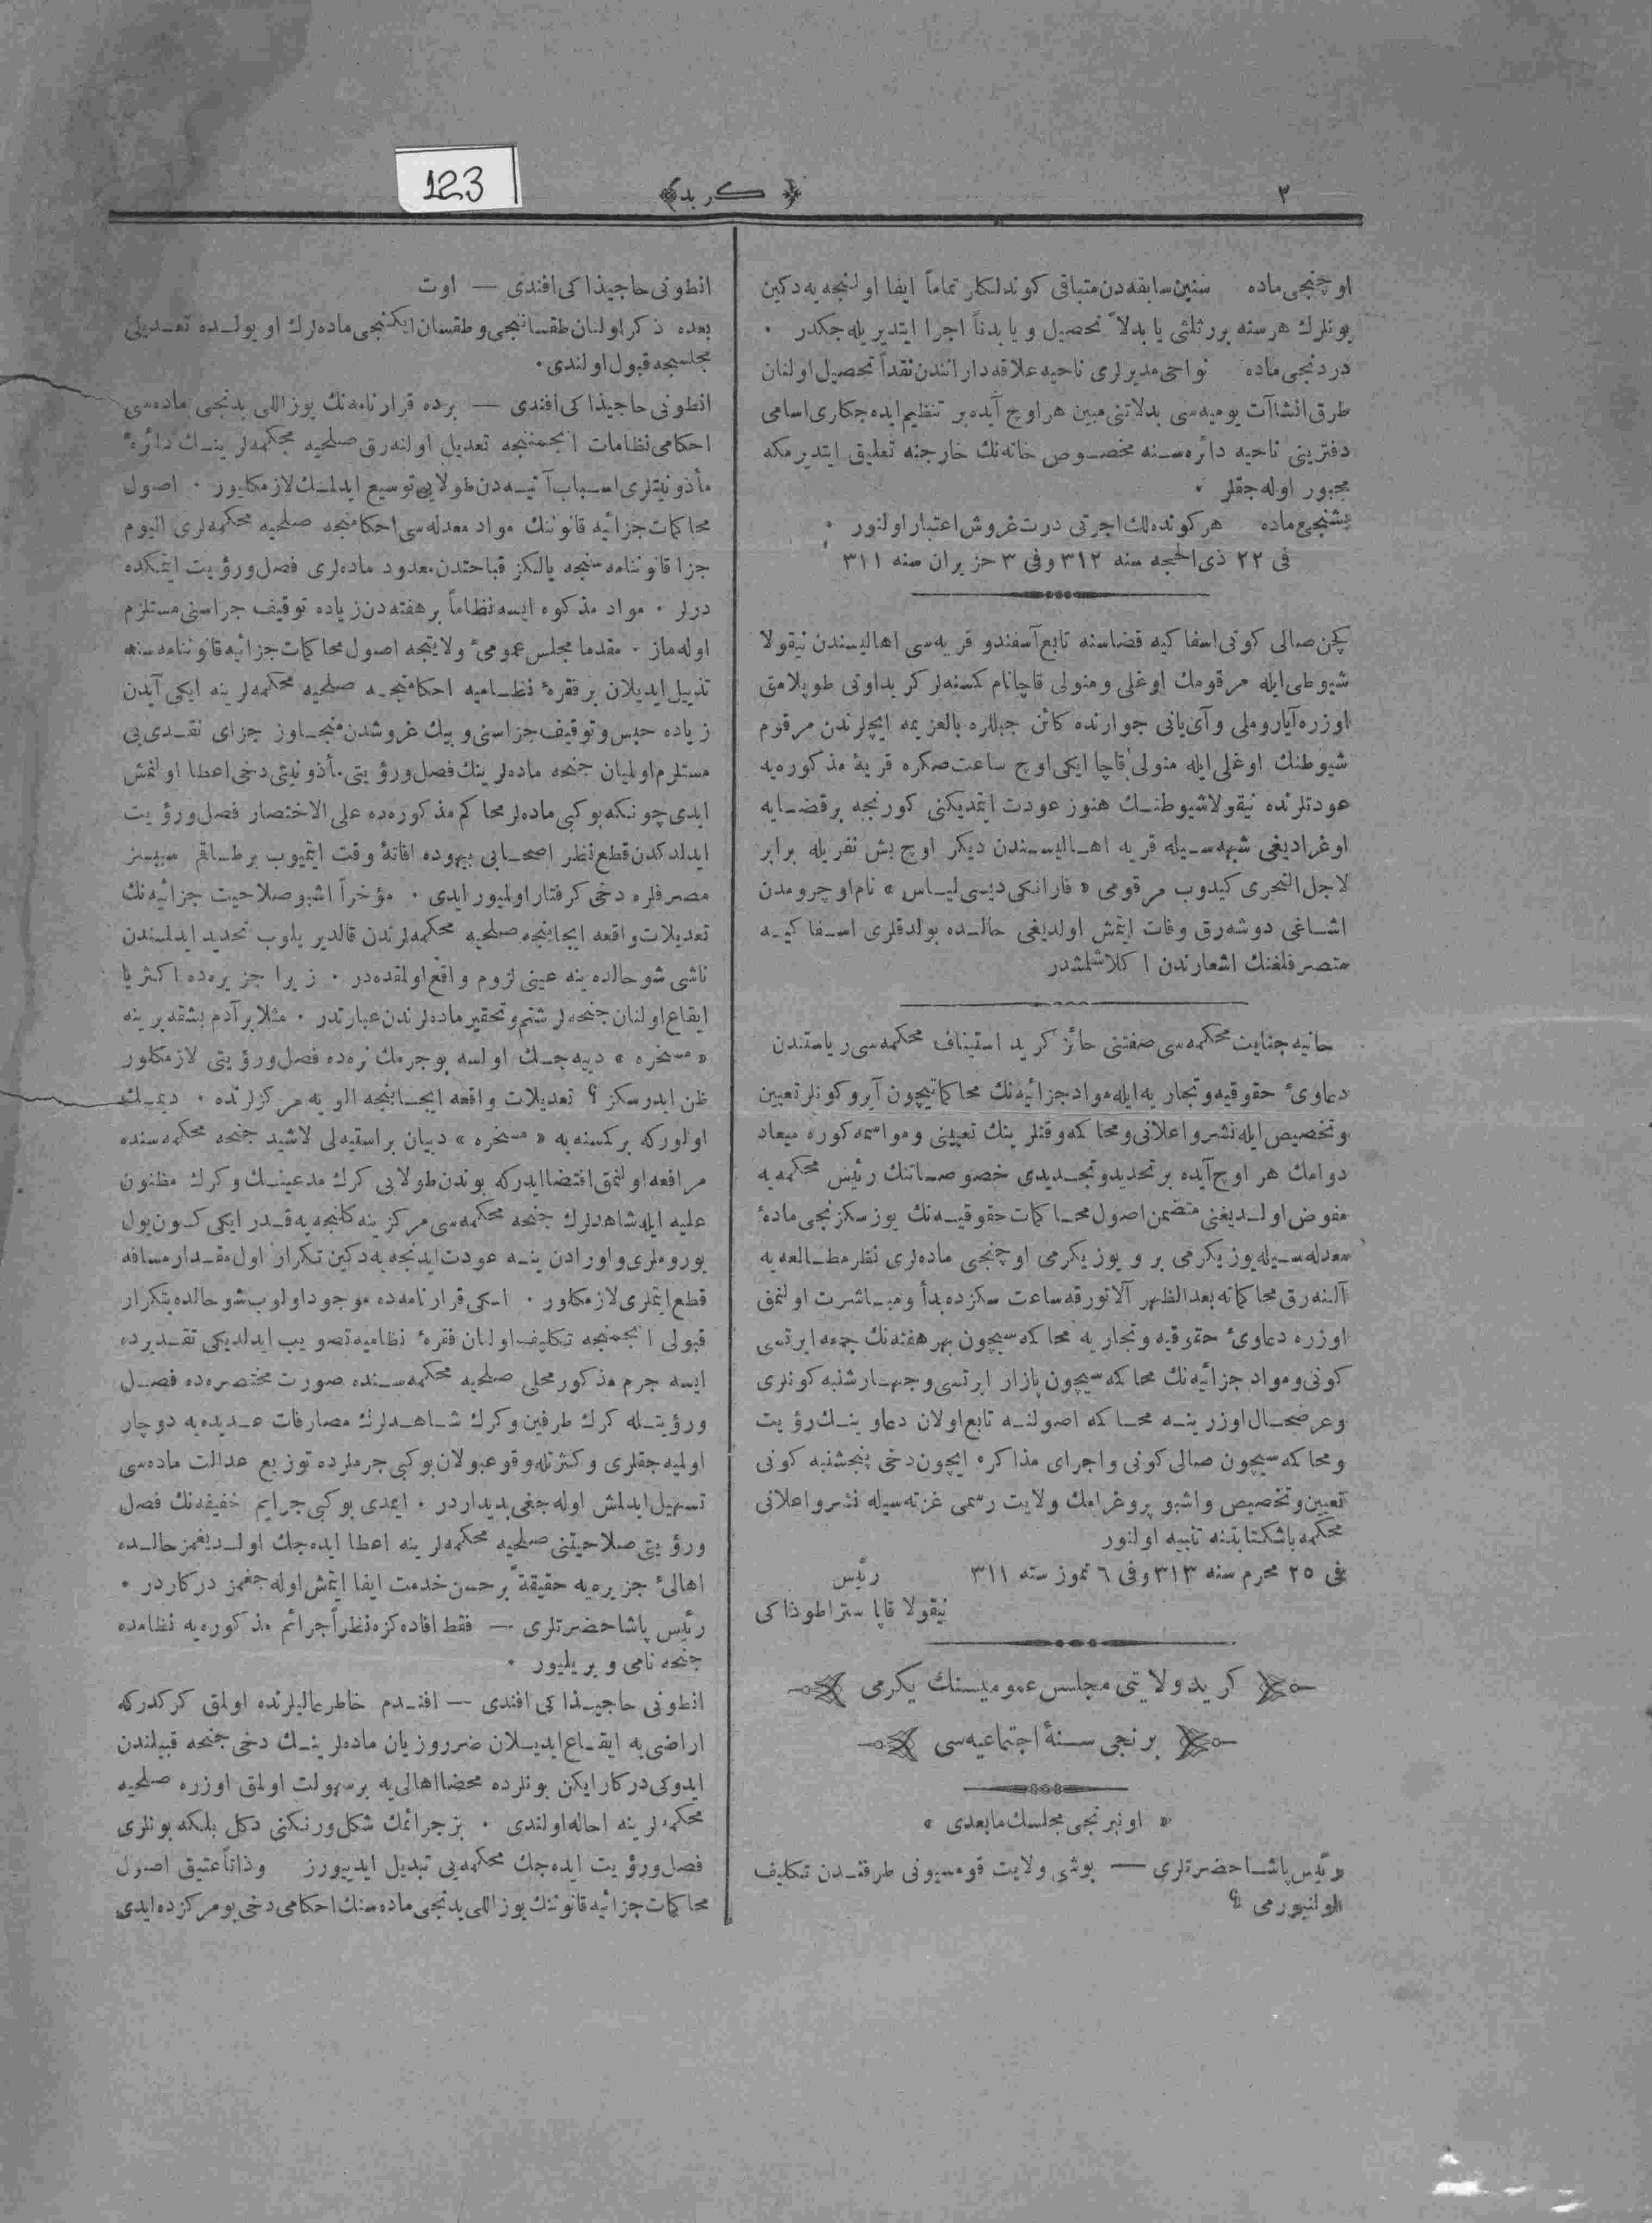 ٢
﴿ كريد ﴾
123
اوچنجی ماده سنين سابقه‌دن متباقی كوندلكلر تماماً ايفا اولنجه‌يه دكين
بونلرك هر سنه بر ثلثی يا بدلاً تحصيل و يا بدناً اجرا ايتديريله‌جكدر ٠
دردنجی ماده نواحی مديرلری ناحيه علاقه‌دارانندن نقداً تحصيل اولنان
طرق انشاآت يوميه‌سی بدلاتنی مبين هر اوچ آيده بر تنظيم ايده‌جكلری اسامی
دفترينی ناحيه دائره‌سنه مخصوص خانه‌نك خارجنه تعليق ايتديرمكه
مجبور اوله‌جقلر ٠
بشنجی ماده هر كونده‌لك اجرتی درت غروش اعتبار اولنور ٠
فی ٢٢ ذی الحجه سنه ٣١٢ وفی ٣ حزيران سنه ٣١١
كچن صالی كونی اسفاكيه قضاسنه تابع آسفندو قريه‌سی اهاليسندن نيقولا
شيوطی ايله مرقومك اوغلی و منولی قاچا نام كسنه‌لر كريد اوتی طوپلامق
اوزره آياروملی و آی‌يانی جوارنده كائن جبللره بالعزيمه ايچلرندن مرقوم
شيوطنك اوغلی ايله منولی قاچا ايكی اوچ ساعت صكره قريهٔ مذكوره‌يه
عودتلرنده نيقولا شيوطنك هنوز عودت ايتمديكنی كورنجه بر قضايه
اوغراديغی شبهه‌سيله قريه اهاليسندن ديكر اوچ بش نفريله برابر
لاجل التحری كيدوب مرقومی « فارانكی ديسی ليـاس » نام اوچرومدن
اشاغی دوشه‌رق وفات ايتمش اولديغی حالده بولدقلری اسفاكيه
متصرفلغنك اشعارندن اكلاشلمشدر
حانيه جنايت محكمه‌سی صفتنی حائز كريد استيناف محكمه‌سی رياستندن
دعاویٔ حقوقيه و تجاريه ايله مواد جزائيه‌نك محاكماتيچون آيرو كونلر تعيين
وتخصيص ايله نشر و اعلانی و محاكمه وقتلرينك تعيينی و مواسمه كوره ميعاد
دوامك هر اوچ آيده بر تحديد وتجديدی خصوصاتنك رئيس محكمه‌يه
مفوض اولديغنی متضمن اصول محاكمات حقوقيه‌نك يوز سكزنجی مادهٔ
معدله‌سيله يوز يكرمی بر و يوز يكرمی اوچنجی ماده‌لری نظر مطالعه‌يه
آلنه‌رق محاكماته بعدالظهر آلاتورقه ساعت سكزده بدأ و مباشرت اولنمق
اوزره دعاویٔ حقوقيه و تجاريه محاكمه‌سيچون بهر هفته‌نك جمعه ايرتسی
كونی و مواد جزائيه‌نك محاكمه‌سيچون پازار ايرتسی و چهارشنبه كونلری
وعرضحال اوزرينه محاكمه اصولنه تابع اولان دعاوينك رؤيت
ومحاكمه‌سيچون صالی كونی و اجرای مذاكره ايچون دخی پنجشنبه كونی
تعيين وتخصيص و اشبو پروغرامك ولايت رسمی غزته‌سيله نشر و اعلانی
محكمه باشكتابتنه تنبيه اولنور
فی ٢٥ محرم سنه ٣١٣ وفی ٦ تموز سنه ٣١١ رئيس
نيقولا قاپا ستراطوذاكی
كريد ولايتی مجلس عموميسنك يكرمی
برنجی سنهٔ اجتماعيه‌سی
« اونبرنجی مجلسك مابعدی »
رئيس پاشا حضرتلری — بونی ولايت قومسيونی طرفندن تكليف
اولنيورمی ؟
انطونی حاجيذاكی افندی — اوت
بعده ذكر اولنان طقساننجی و طقسان ايكنجی ماده‌لرك او يولده تعديلی
مجلسجه قبول اولندی ٠
انطونی حاجيذاكی افندی — برده قرارنامه‌نك يوز اللی يدنجی ماده‌سی
احكامی نظامات انجمننجه تعديل اولنه‌رق صلحيه محكمه‌لرينك دائرهٔ
مأذونيتلری اسباب آتيه‌دن طولايی توسيع ايدلمك لازمكليور ٠ اصول
محاكمات جزائيه قانوننك مواد معدله‌سی احكامنجه صلحيه محكمه‌لری اليوم
جزا قانوننامه‌سنجه يالكز قباحتدن معدود ماده‌لری فصل ورؤيت ايتمكده
درلر ٠ مواد مذكوره ايسه نظاماً بر هفته‌دن زياده توقيف جزاسنی مستلزم
اوله‌ماز ٠ مقدما مجلس عمومیٔ ولايتجه اصول محاكمات جزائيه قانوننامه‌سنه
تذييل ايديلان بر فقرهٔ نظاميه احكامنجه صلحيه محكمه‌لرينه ايكی آيدن
زياده حبس و توقيف جزاسنی و بيك غروشدن متجاوز جزای نقدی‌یی
مستلزم اولميان جنحه ماده‌لرينك فصل ورؤيتی مأذونيتی دخی اعطا اولنمش
ايدی چونكه بو كبی ماده‌لر محاكم مذكوره‌ده علی الاختصار فصل ورؤيت
ايدلدكدن قطع نظر اصحابی بيهوده افاتهٔ وقت ايتميوب بر طاقم سبسز
مصرفلره دخی كرفتار اولميور ايدی ٠ مؤخراً اشبو صلاحيت جزائيه‌نك
تعديلات واقعه ايجابنجه صلحيه محكمه‌لرندن قالديريلوب تحديد ايدلمسندن
ناشی شو حالده ينه عينی لزوم واقع اولمقده‌در ٠ زيرا جزيره‌ده اكثريا
ايقاع اولنان جنحه‌لر شتم وتحقير ماده‌لرندن عبارتدر ٠ مثلا بر آدم بشقه برينه
« مسخره » دييه‌جك اولسه بو جرمك نره‌ده فصل ورؤيتی لازمكلور
ظن ايدرسكز ؟ تعديلات واقعه ايجابنجه الويه مركزلرنده ٠ ديمك
اولوركه بر كمسنه‌يه « مسخره » ديیان بر استيه‌لی لاشيد جنحه محكمه‌سنده
مرافعه اولنمق اقتضا ايدركه بوندن طولايی كرك مدعينك و كرك مظنون
عليه ايله شاهدلرك جنحه محكمه‌سی مركزينه كلنجه‌يه قدر ايكی كون يول
يوروملری و اورادن ينه عودت ايدنجه‌يه دكين تكرار اول مقدار مسافه
قطع ايتملری لازمكلور ٠ اسكی قرارنامه‌ده موجود اولوب شو حالده بتكرار
قبولی انجمنجه تكليف اولنان فقرهٔ نظاميه تصويب ايدلديكی تقديرده
ايسه جرم مذكور محلی صلحيه محكمه‌سنده صورت مختصره‌ده فصل
ورؤيتله كرك طرفين و كرك شاهدلرك مصارفات عديده‌يه دوچار
اولميه‌جقلری و كثرتله وقوعبولان بو كبی جرملرده توزيع عدالت ماده‌سی
تسهيل ايدلمش اوله‌جغی بديداردر ٠ ايمدی بو كبی جرايم خفيفه‌نك فصل
ورؤيتی صلاحيتنی صلحيه محكمه‌لرينه اعطا ايده‌جك اولديغمز حالده
اهالیٔ جزيره‌يه حقيقةً بر حسن خدمت ايفا ايتمش اوله‌جغمز دركاردر ٠
رئيس پاشا حضرتلری — فقط افاده‌كزه نظراً جرائم مذكوره‌يه نظامده
جنحه نامی ويريليور ٠
انطونی حاجيذاكی افندی — افندم خاطر عاليلرنده اولمق كركدركه
اراضی‌يه ايقاع ايديلان ضرر و زيان ماده‌لرينك دخی جنحه قبيلندن
ايدوكی دركار ايكن بونلرده محضا اهالی‌يه بر سهولت اولمق اوزره صلحيه
محكمه‌لرينه احاله اولندی ٠ بز جرائمك شكل ورنكنی دكل بلكه بونلری
فصل ورؤيت ايده‌جك محكمه‌یی تبديل ايدييورز وذاتاً عتيق اصول
محاكمات جزائيه قانوننك يوز اللی يدنجی ماده‌سنك احكامی دخی بو مركزده ايدی